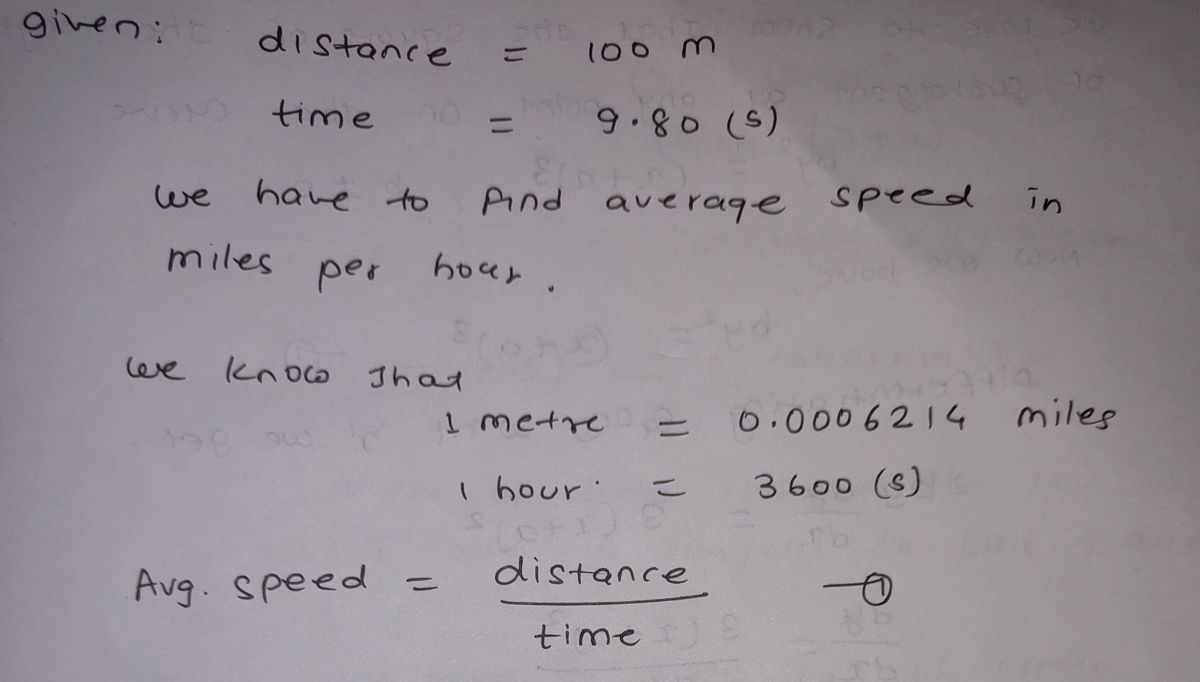 given: distance = 100 m
time = 9.80 (s)
we have to find average speed in
miles per hour.
we know that
1 metre = 0.0006214 miles
1 hour = 3600 (s)
Avg. speed = distance / time —①